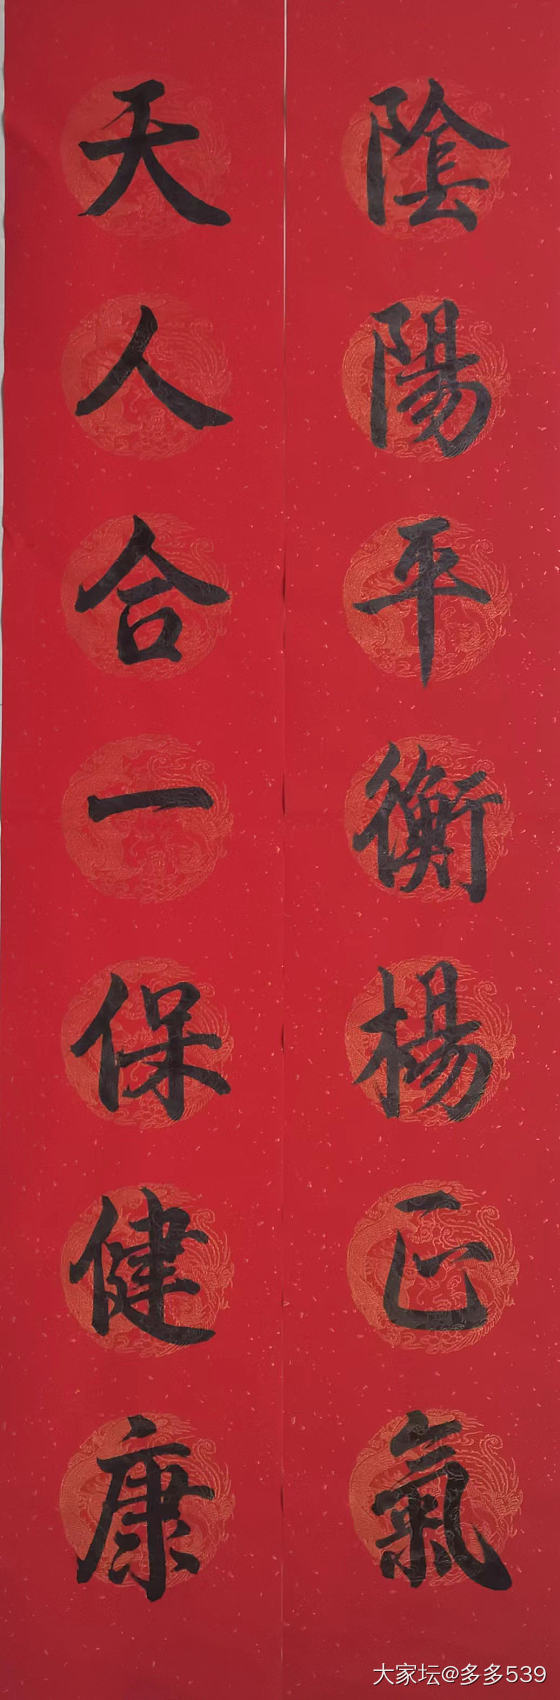 陰陽平衡楊正氣
天人合一保健康
大家坛@多多539